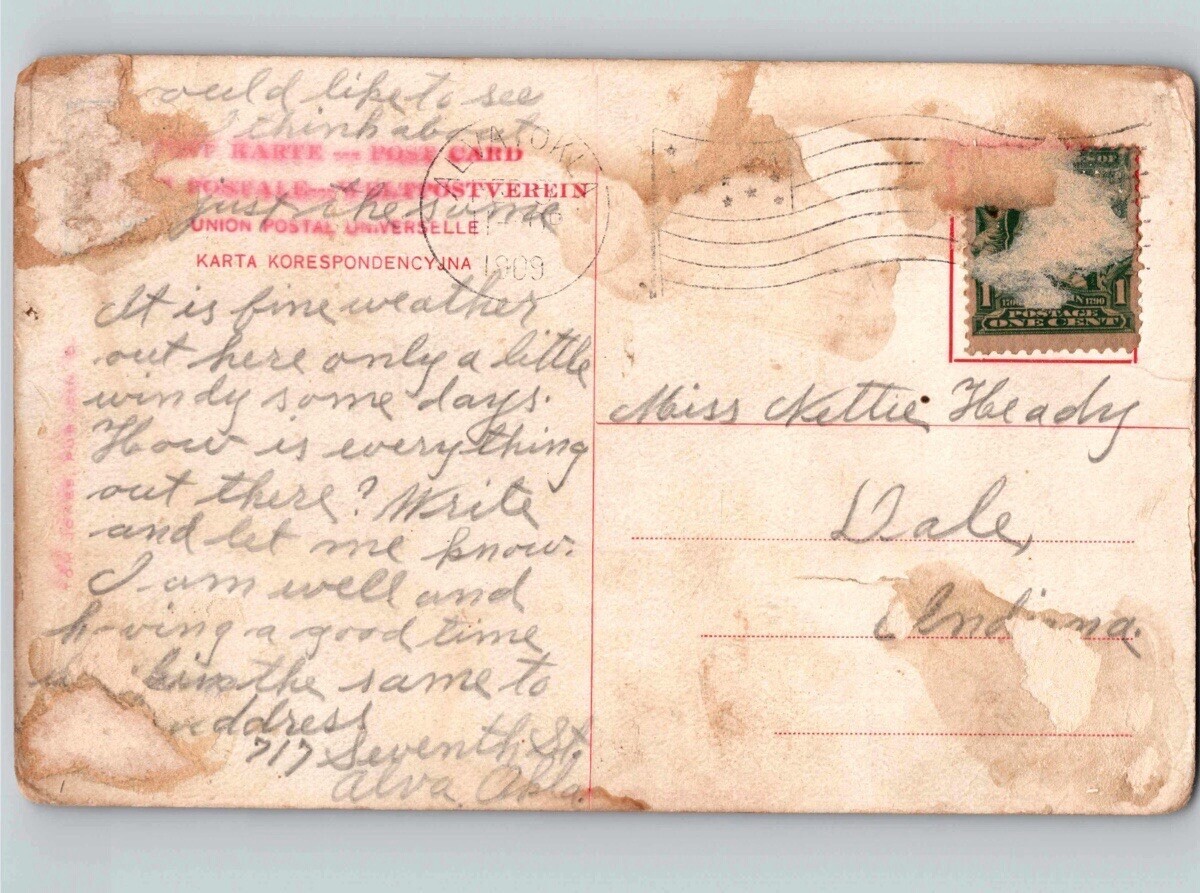 ould like to see
I think about
just the same
KARTE — POST CARD
POSTALE — WELTPOSTVEREIN
UNION POSTAL UNIVERSELLE
KARTA KORESPONDENCYJNA
It is fine weather
out here only a little
windy some days.
How is everything
out there? Write
and let me know.
I am well and
having a good time
the same to
address
717 Seventh St.
Alva, Okla.
ALVA, OKLA
1909
POSTAGE
ONE CENT
1 1
IN 1790
Miss Nettie Heady
Dale,
Indiana.